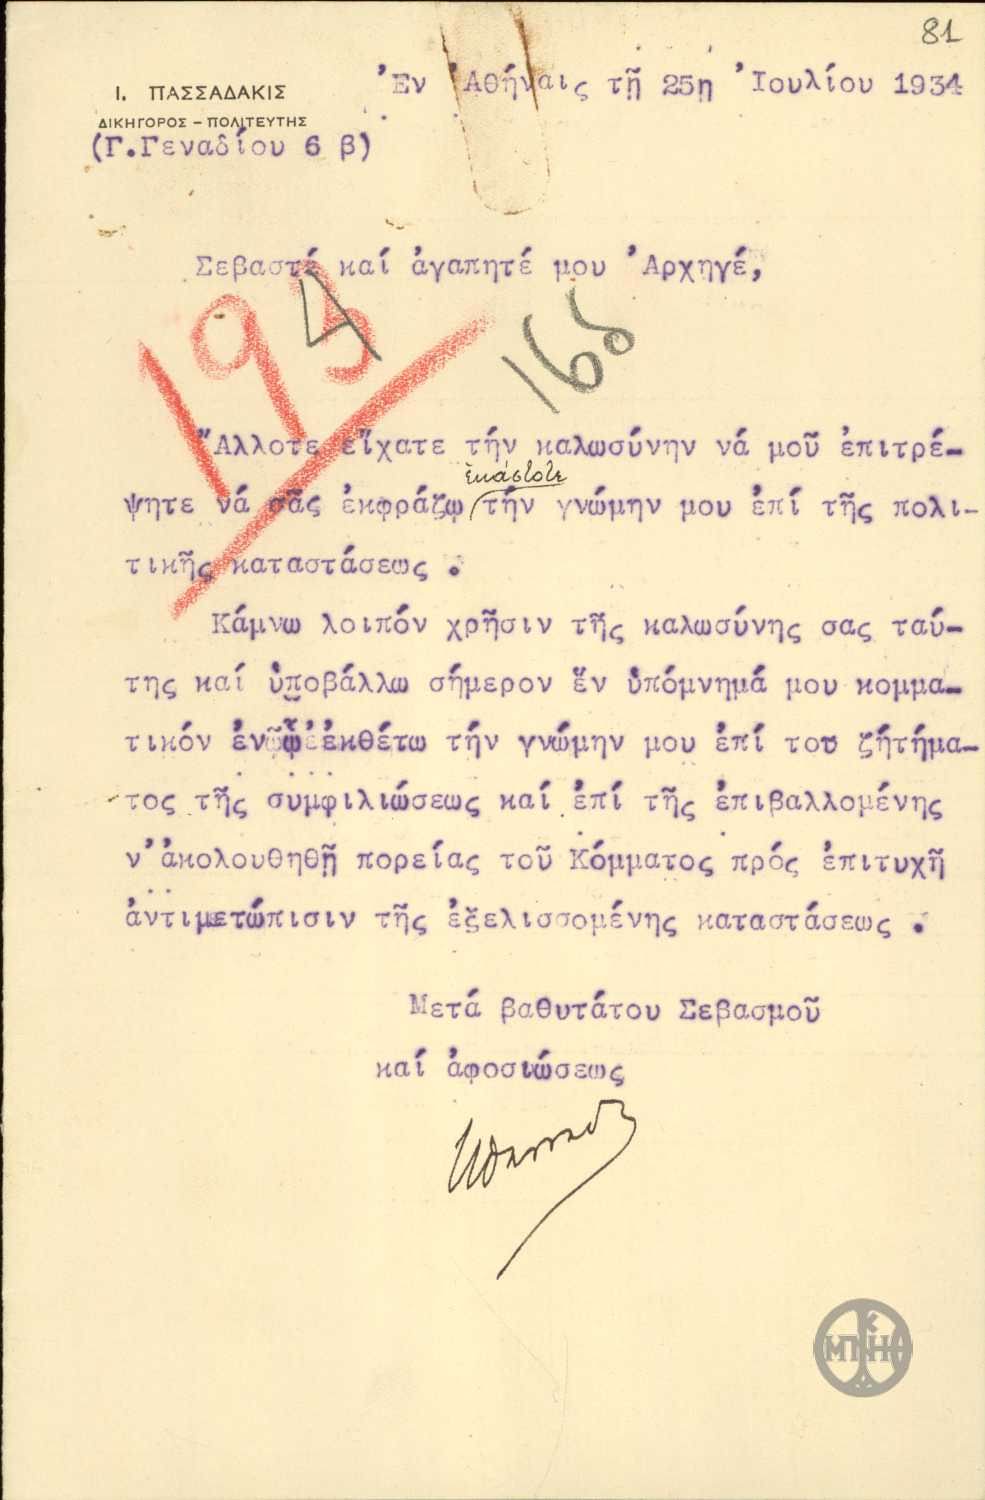 81
Ι. ΠΑΣΣΑΔΑΚΙΣ
ΔΙΚΗΓΟΡΟΣ – ΠΟΛΙΤΕΥΤΗΣ
(Γ.Γεναδίου 6 β)
Ἐν Ἀθήναις τῇ 25η Ἰουλίου 1934
Σεβαστέ καί ἀγαπητέ μου Ἀρχηγέ,
194
168
Ἄλλοτε εἴχατε τήν καλωσύνην νά μοῦ ἐπιτρέ-
ἑκάστοτε
ψητε νά σᾶς ἐκφράζω τήν γνώμην μου ἐπί τῆς πολι-
τικῆς καταστάσεως .
Κάμνω λοιπόν χρῆσιν τῆς καλωσύνης σας ταύ-
της καί ὑποβάλλω σήμερον ἕν ὑπόμνημά μου κομμα-
τικόν ἐν ᾧ ἐκθέτω τήν γνώμην μου ἐπί του ζήτήμα-
τος τῆς συμφιλιώσεως καί ἐπί τῆς ἐπιβαλλομένης
ν'ἀκολουθηθῇ πορείας τοῦ Κόμματος πρός ἐπιτυχῆ
ἀντιμετώπισιν τῆς ἐξελισσομένης καταστάσεως .
Μετά βαθυτάτου Σεβασμοῦ
καί ἀφοσιώσεως
ΜΝΗ